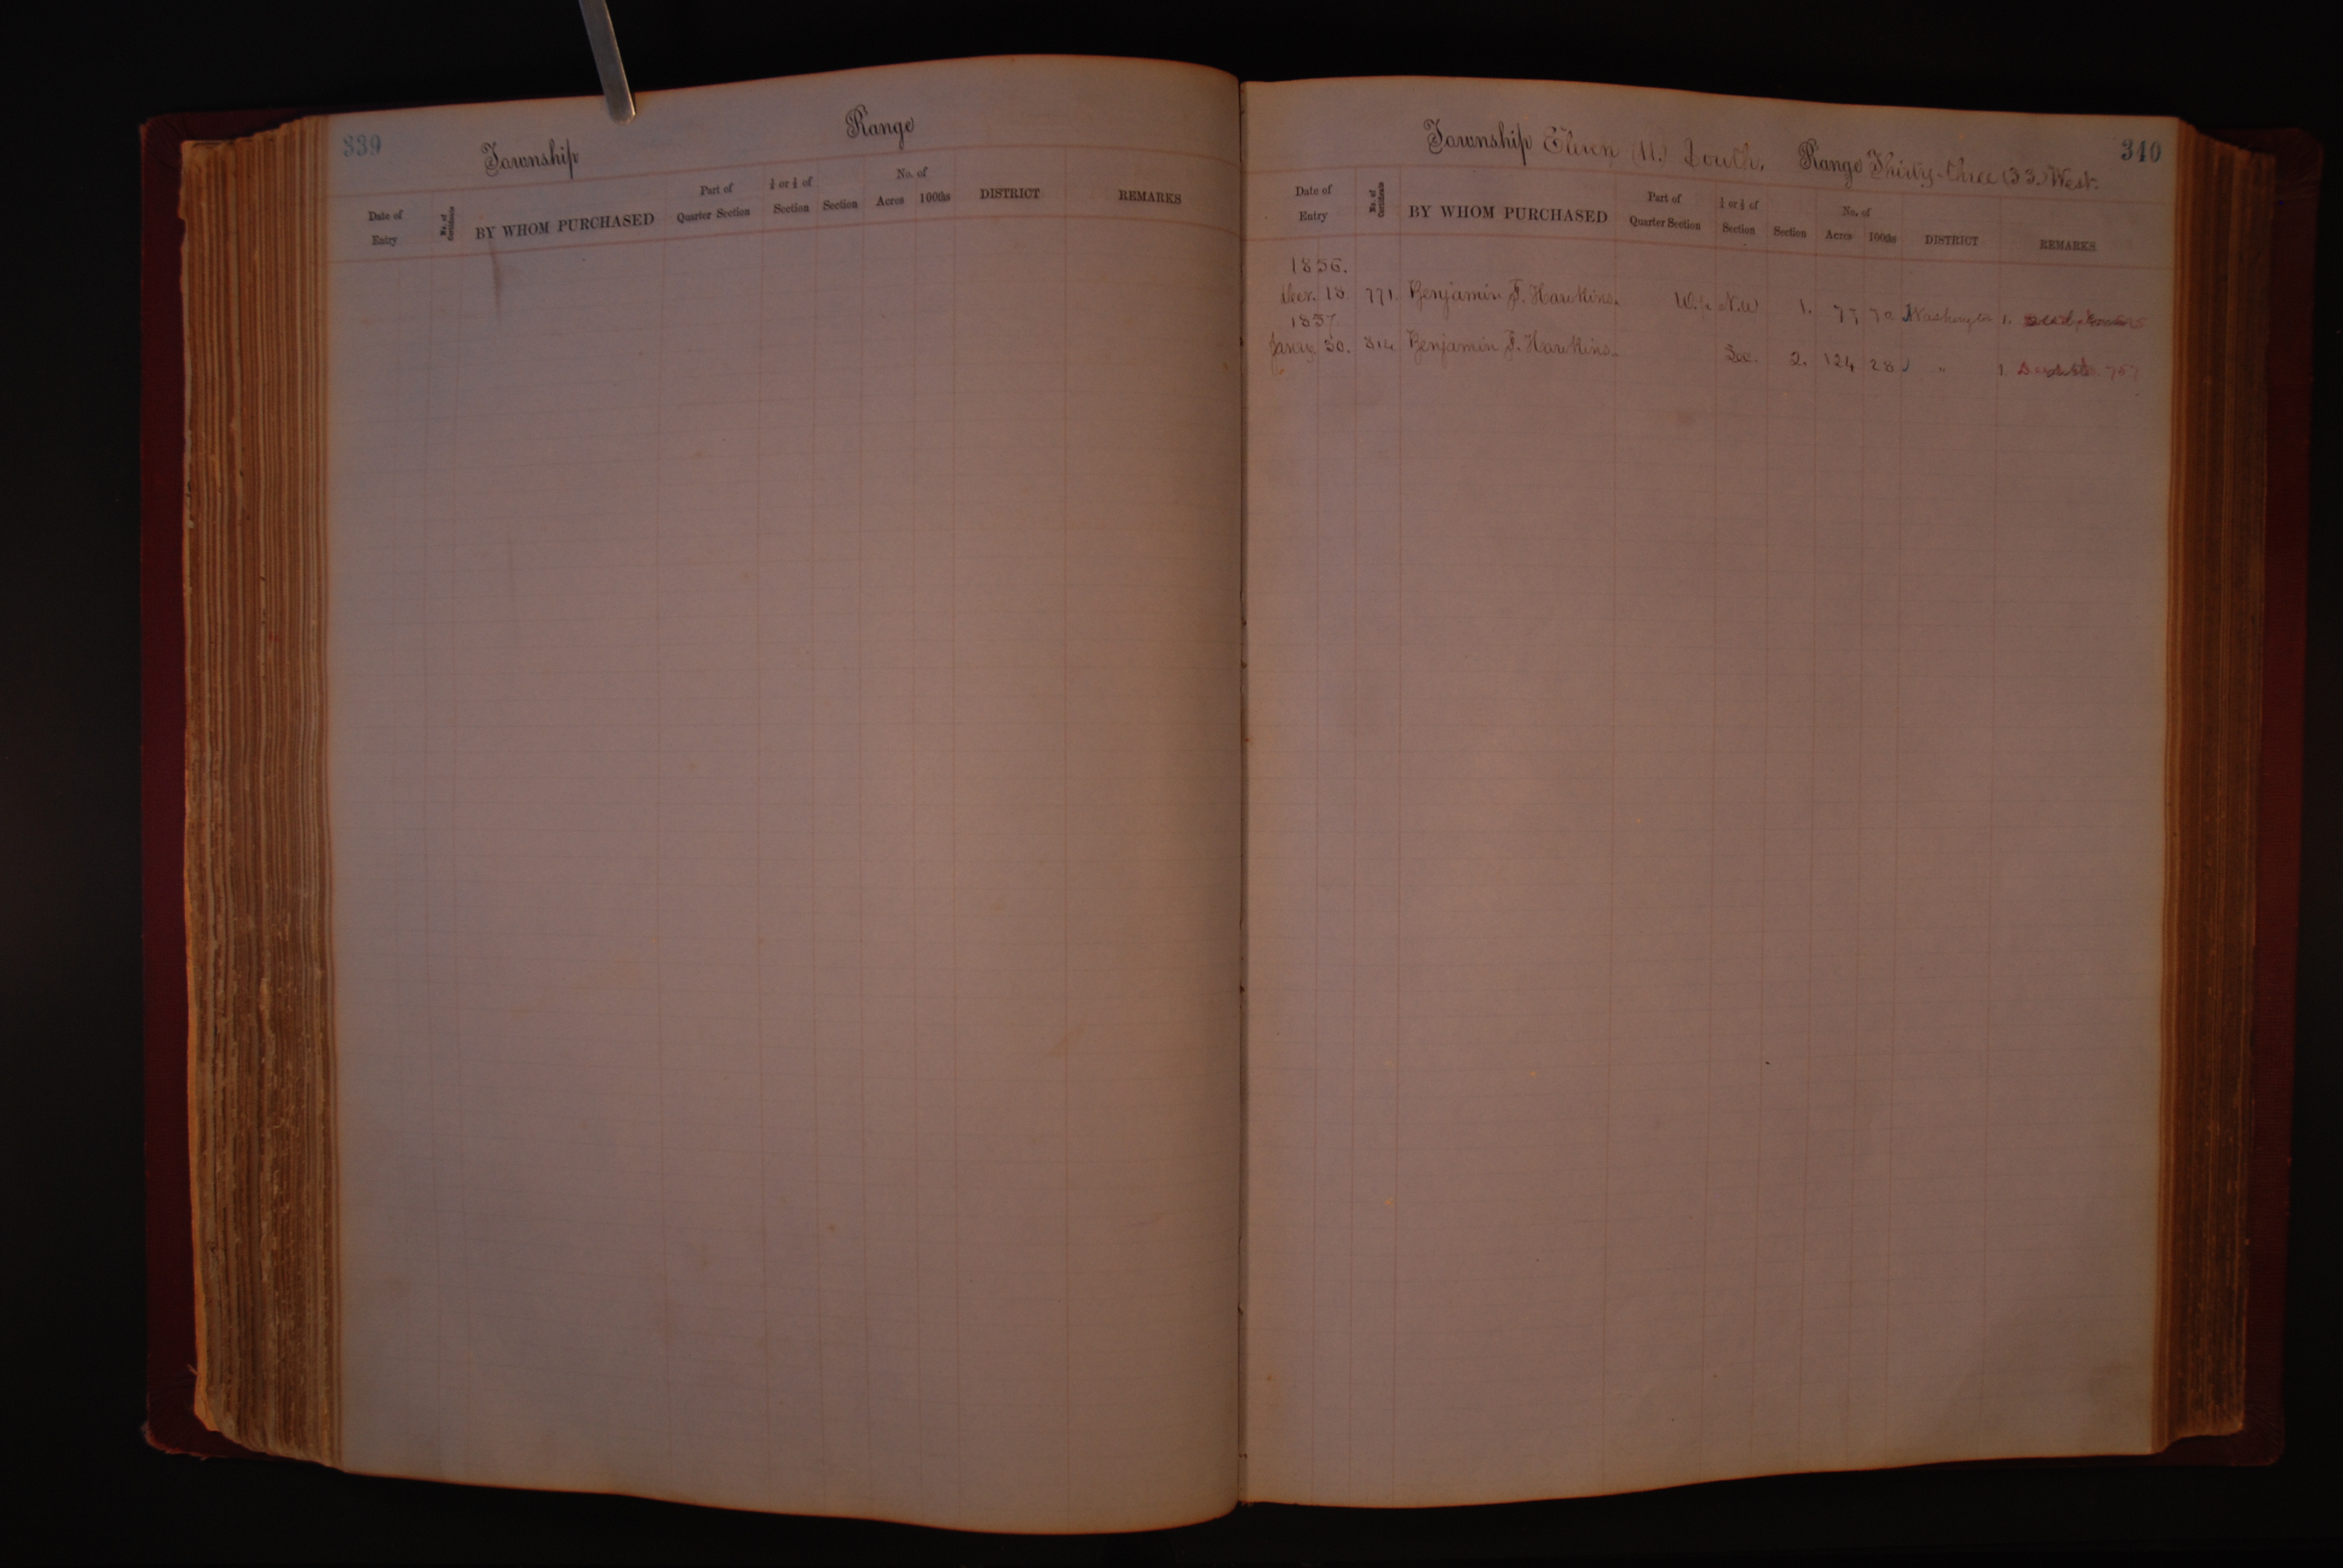 339
Township Range
Date of Entry No. of Certificate BY WHOM PURCHASED Part of Quarter Section ½ or ¼ of Section Section No. of Acres 100ths DISTRICT REMARKS
340
Township Eleven (11.) South. Range Thirty-three (33.) West.
Date of Entry No. of Certificate BY WHOM PURCHASED Part of Quarter Section ½ or ¼ of Section Section No. of Acres 100ths DISTRICT REMARKS
1856.
18 771. Benjamin F. Hawkins. W.½ N.W 1. 77 70 Washington 1.
1857
30. 814 Benjamin F. Hawkins. 2. 124 28 " 1. 757